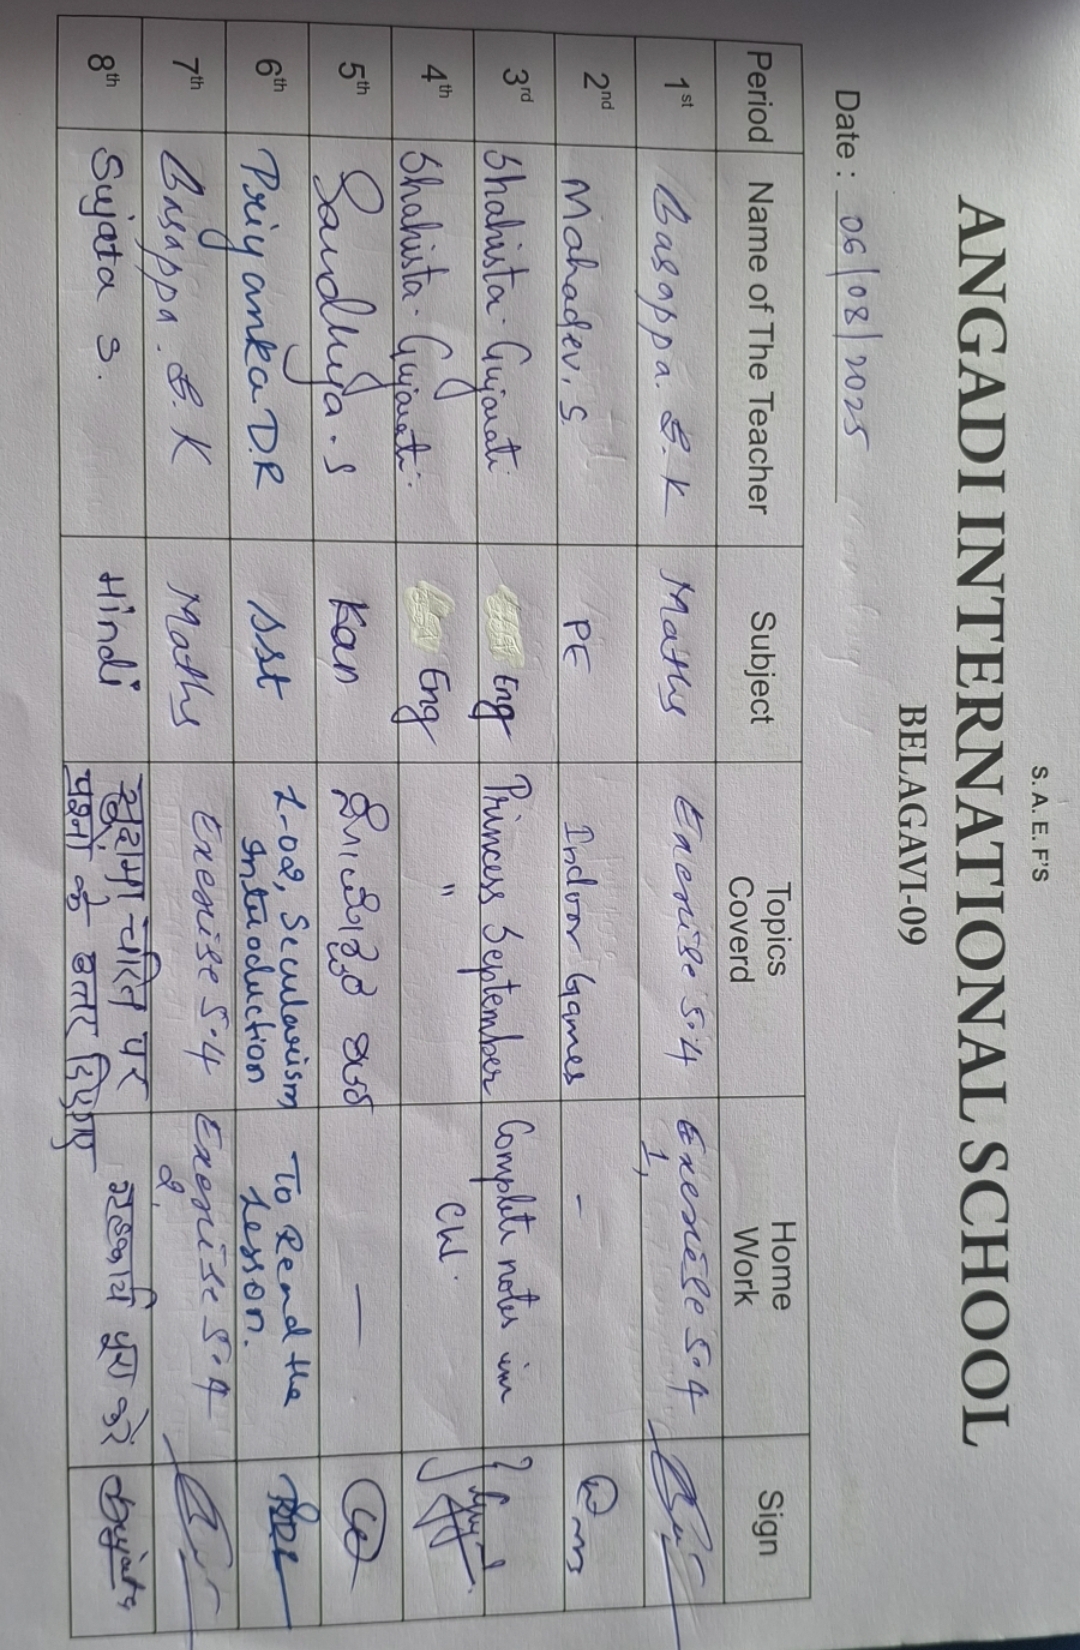 S. A. E. F'S
ANGADI INTERNATIONAL SCHOOL
BELAGAVI-09
Date : 06/08/2025
Period Name of The Teacher Subject Topics Coverd Home Work Sign
1st Basappa. B. K Maths Exercise 5.4 Exercise 5.4
1,
2nd Mahadev. S PE Indoor Games -
3rd Shahista. Gujarati Eng Princess September Complete notes in
4th Shahista. Gujarati. Eng " CW.
5th Sandhya. S Kan —
6th Priyanka D.R Sst L-02, Secularism To Read the
Introduction Lesson.
7th Basappa. B. K Maths Exercise 5.4 Exercise 5.4
2,
8th Sujata S. Hindi सुदामा चरित पर गृहकार्य पूरा करे Sujata
प्रश्नों के उत्तर दिए गए